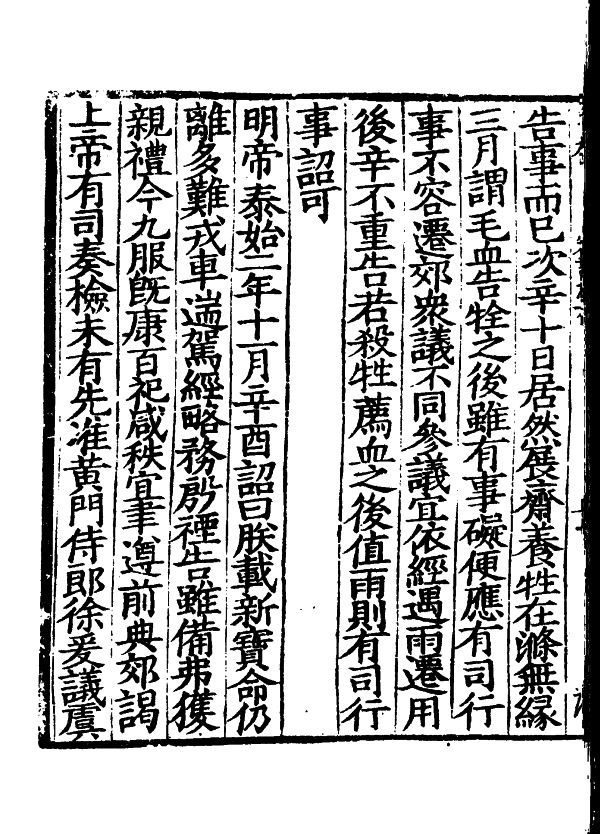 告事而已次辛十日居然展齋養牲在滌無緣
三月謂毛血告牷之後雖有事礙便應有司行
事不容遷郊衆議不同參議宜依經遇雨遷用
後辛不重告若殺牲薦血之後值雨則有司行
事詔可
明帝泰始二年十一月辛酉詔曰朕載新寶命仍
離多難戎車遄駕經略務殷禋告雖備弗獲
親禮今九服旣康百祀咸秩宜聿遵前典郊謁
上帝有司奏檢未有先准黄門侍郎徐爰議虞